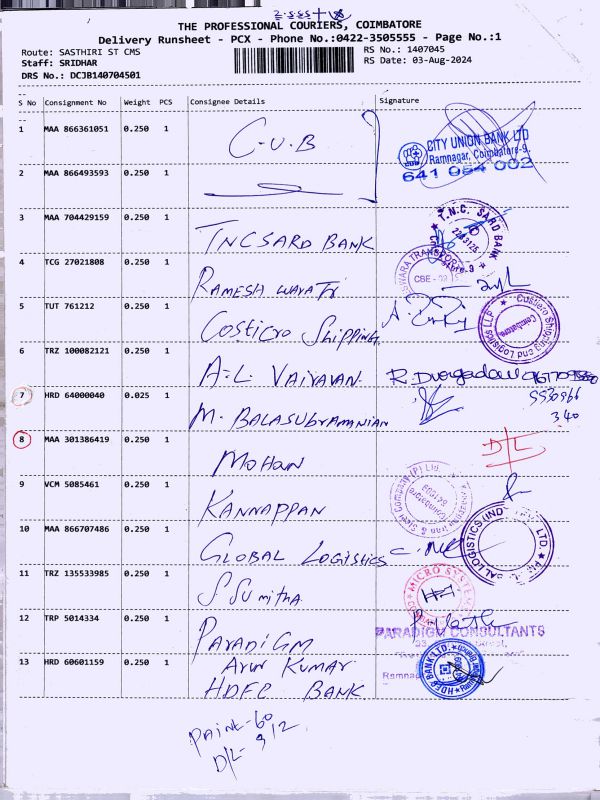 THE PROFESSIONAL COURIERS, COIMBATORE
Delivery Runsheet - PCX - Phone No.:0422-3505555 - Page No.:1
Route: SASTHIRI ST CMS
RS No.: 1407045
Staff: SRIDHAR
RS Date: 03-Aug-2024
DRS No.: DCJB140704501
S No Consignment No Weight PCS Consignee Details Signature
1 MAA 866361051 0.250 1 C.U.B
CITY UNION BANK LTD
Ramnagar, Coimbatore-9.
641 054 002
2 MAA 866493593 0.250 1
3 MAA 704429159 0.250 1 TNCSARD BANK
T.N.C. SARD BANK
4 TCG 27021808 0.250 1 RAMESH
5 TUT 761212 0.250 1 Costicro Shipping
Shipping and Logistics LLP
Coimbatore
6 TRZ 100082121 0.250 1 A.L. VAIRAVAN
7 HRD 64000040 0.025 1 M. BALASUbramanian
340
8 MAA 301386419 0.250 1 Mohan D/L
9 VCM 5085461 0.250 1 KANNAPPAN
10 MAA 866707486 0.250 1 GLOBAL LOGISTICS
11 TRZ 135533985 0.250 1 S Sumitha
MICRO
12 TRP 5014334 0.250 1 PARADIGM
PARADIGM CONSULTANTS
13 HRD 60601159 0.250 1 Arun Kumar
HDFC BANK
HDFC BANK LTD.
Paint-60
D/L-